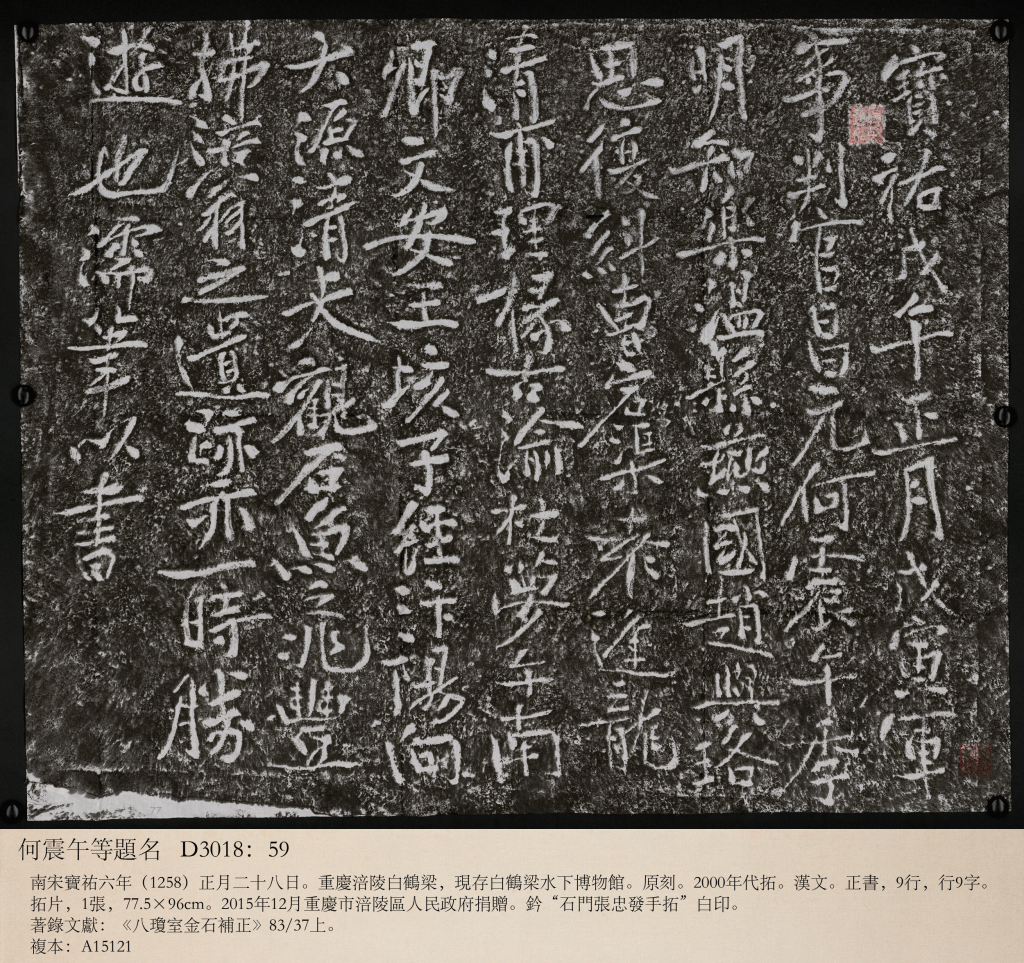 寶祐戊午正月戊寅軍
事判官昌元何震午季
明知樂溫縣燕國趙興珞
思復糾曹宕渠袁逢龍
清甫理掾古渝杜夢午南
卿文安王垓子經汴陽向
大源清夫觀石魚之兆豐
拂涪翁之遺跡亦一時勝
遊也濡筆以書
77
何震午等題名 D3018：59
南宋寶祐六年（1258）正月二十八日。重慶涪陵白鶴梁，現存白鶴梁水下博物館。原刻。2000年代拓。漢文。正書，9行，行9字。
拓片，1張，77.5×96cm。2015年12月重慶市涪陵區人民政府捐贈。鈐“石門張忠發手拓”白印。
著錄文獻：《八瓊室金石補正》83/37上。
複本：A15121